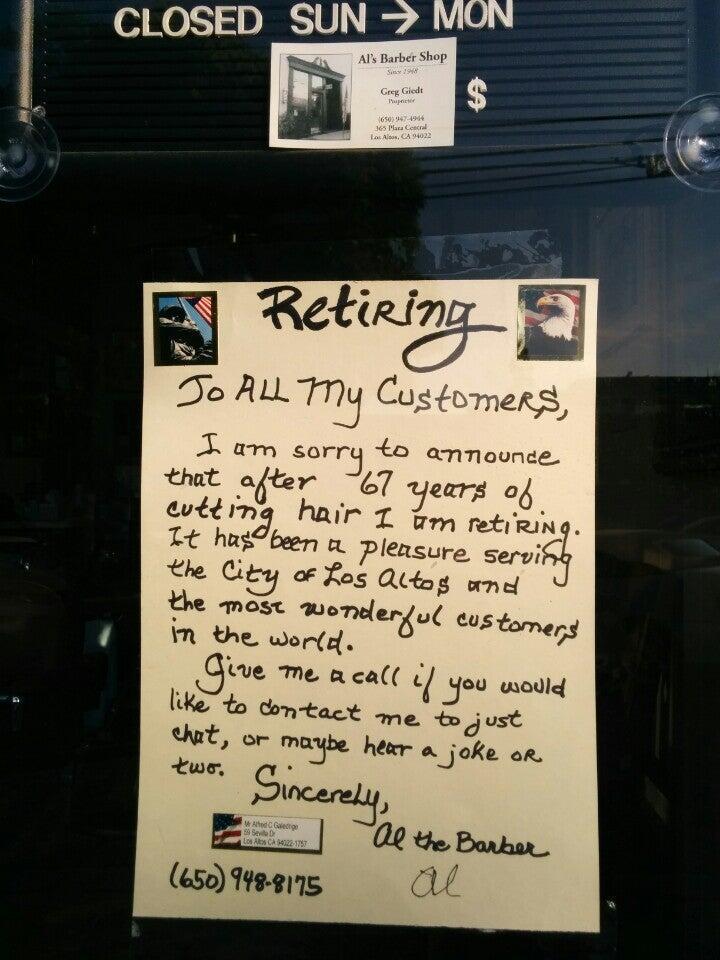 CLOSED SUN → MON
Al's Barber Shop
Since 1948
Greg Giedt
Proprietor
(650) 947-4944
365 Plaza Central
Los Altos, CA 94022
$
Retiring
To ALL My Customers,
I am sorry to announce
that after 67 years of
cutting hair I am retiring.
It has been a pleasure serving
the City of Los Altos and
the most wonderful customers
in the world.
Give me a call if you would
like to contact me to just
chat, or maybe hear a joke or
two.
Sincerely,
Al the Barber
Al
Mr Alfred C Galedrige
59 Sevilla Dr
Los Altos CA 94022-1757
(650) 948-8175